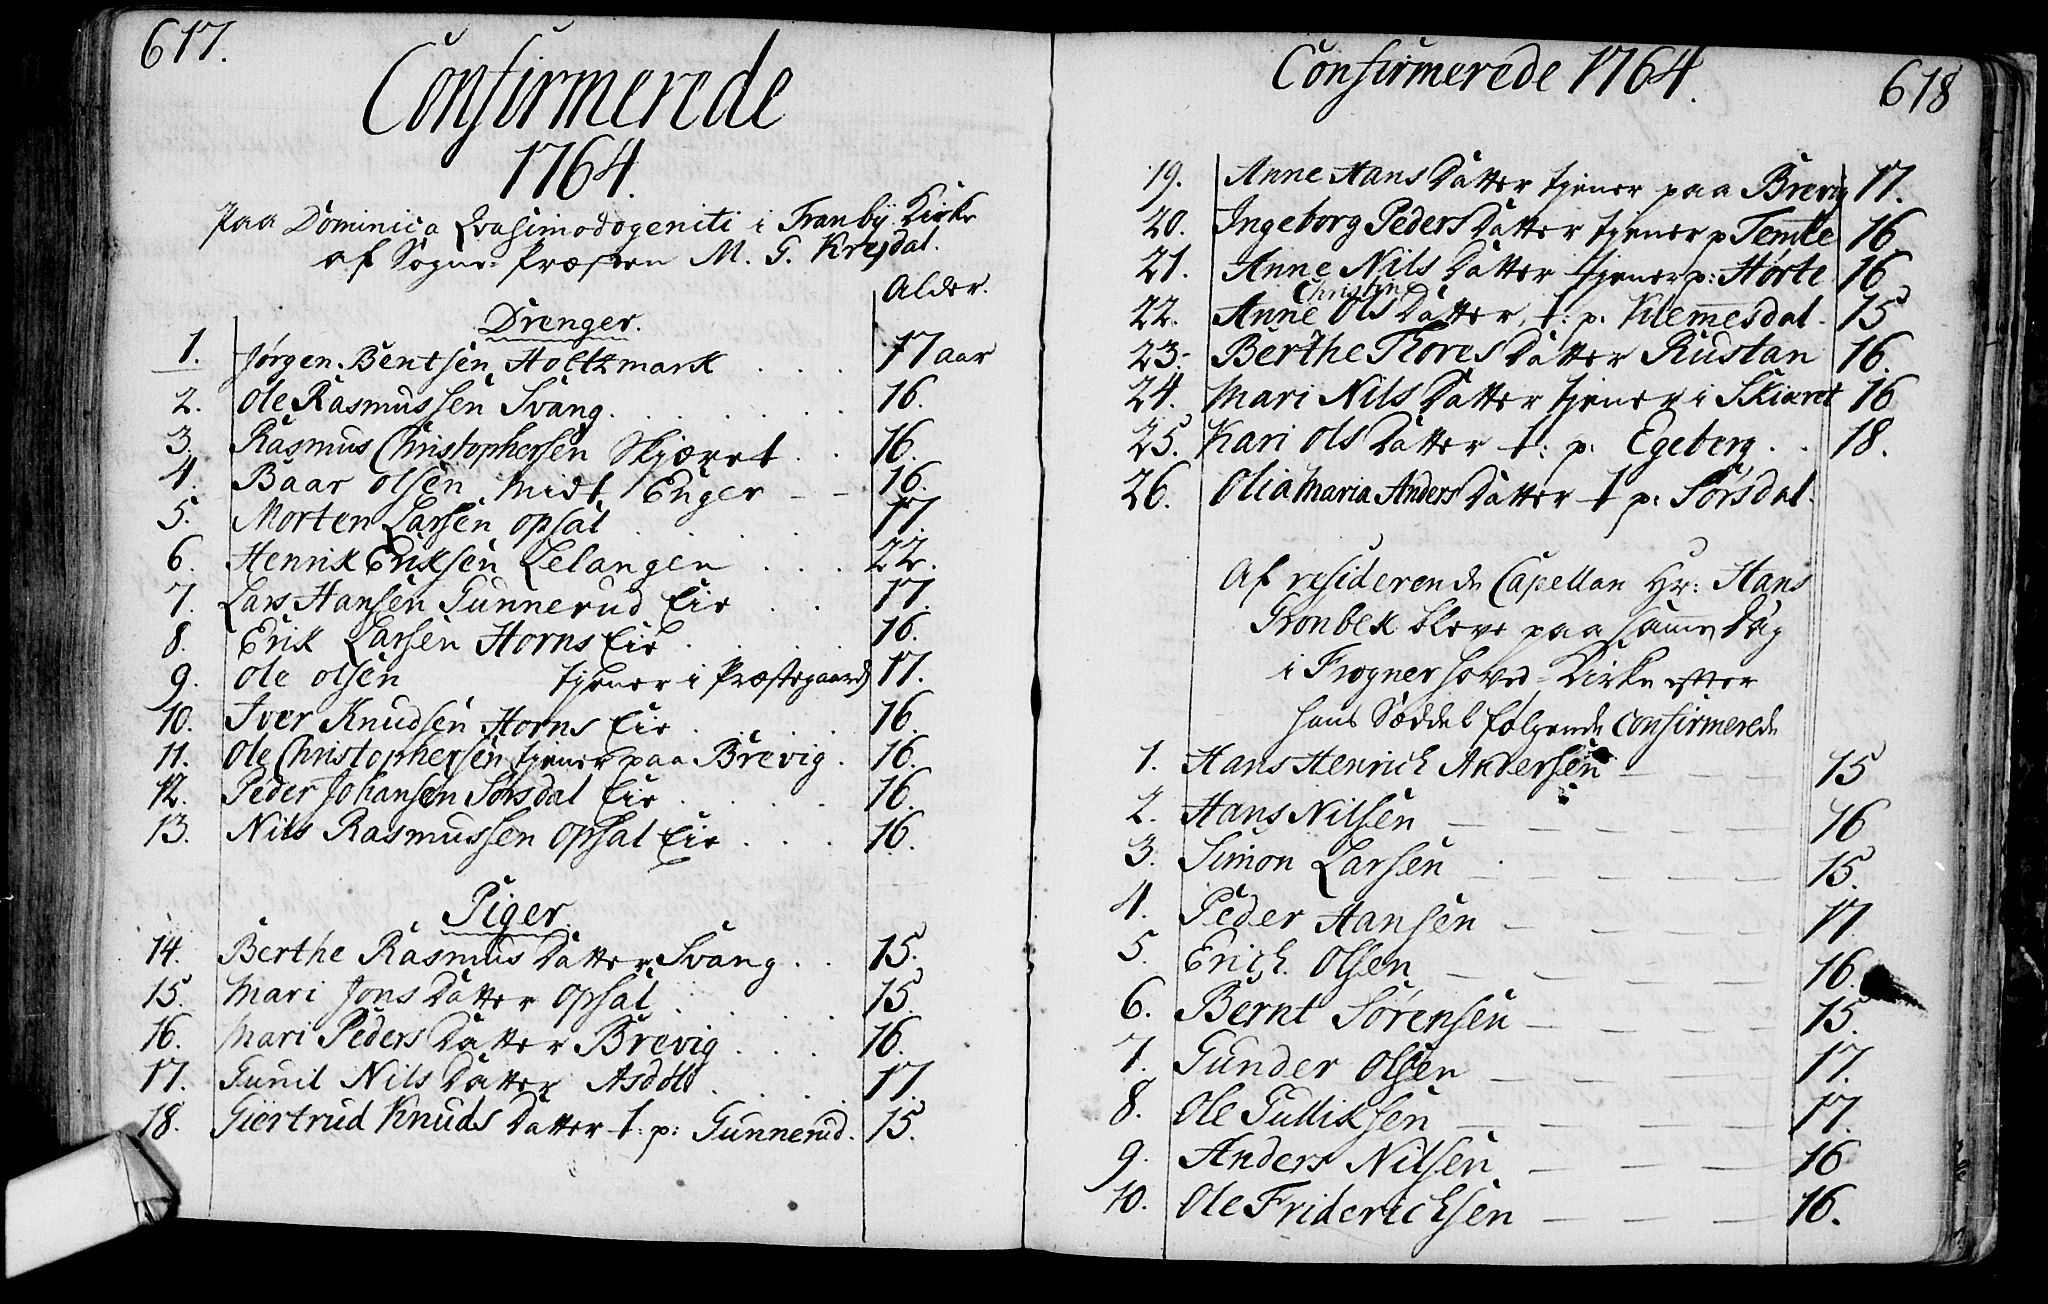 617.
Confirmerede
1764.
Paa Dominica Qvasimodogeniti i Tranbÿ Kirke
af Sogne-Præsten M. G. Krejdal.
Alder.
Drenger.
1. Jørgen Bentsen Holtzmark . . . 17 aar
2. Ole Rasmussen Svang . . . . . . 16.
3. Rasmus Christophersen Skjæret . . 16.
4. Baar Olsen Midt Enger – – 16.
5. Morten Larsen Opsal . . . . 17.
6. Henrik Eriksen Lelangen . . . 22.
7. Lars Hansen Gunnerud Eie . . 17.
8. Erik Larsen Horns Eie . . . . 16.
9. Ole Olsen tjener i Præstegaard 17.
10. Iver Knudsen Horns Eie . . . . 16.
11. Ole Christophersen tjener paa Brevig . 16.
12. Peder Johansen Sørsdal Eie . . . . 16.
13. Nils Rasmussen Opsal Eie . . . 16.
Piger.
14. Berthe Rasmus Datter Svang . . 15.
15. Mari Jons Datter Opsal . . . . 15.
16. Mari Peders Datter Brevig . . . 16.
17. Gunil Nils Datter Asdøl . . . . 17.
18. Giertrud Knuds Datter t: p: Gunnerud. 15.
Confirmerede 1764.
618
19. Anne Hans Datter tjener paa Brevig 17.
20. Ingeborg Peders Datter tjener p Temte 16
21. Anne Nils Datter tjener p: Hørte 16
Christine
22. Anne Ols Datter, t: p. Klemesdal . 15
23. Berthe Thores Datter Rustan 16.
24. Mari Nils Datter tjener i Skiæret 16
25. Kari Ols Datter t: p: Egeberg . . 18.
26. Olia Maria Anders Datter t p: Sørsdal.
Af residerende Capellan Hr: Hans
Gronbek bleve paa samme Dag
i Frogner Hoved-Kirke efter
hans Seddel følgende confirmerede
1. Hans Henrich Andersen – – – 15
2. Hans Nilsen – – – – – – 16
3. Simon Larsen – – – – – 15.
4. Peder Hansen – – – – 17
5. Erich Olsen – – – – 16.
6. Bernt Sørensen – – – – 15.
7. Gunder Olsen – – – – 17.
8. Ole Gulliksen – – – – 17.
9. Anders Nilsen – – – 16
10. Ole Friderichsen – – – – 16.